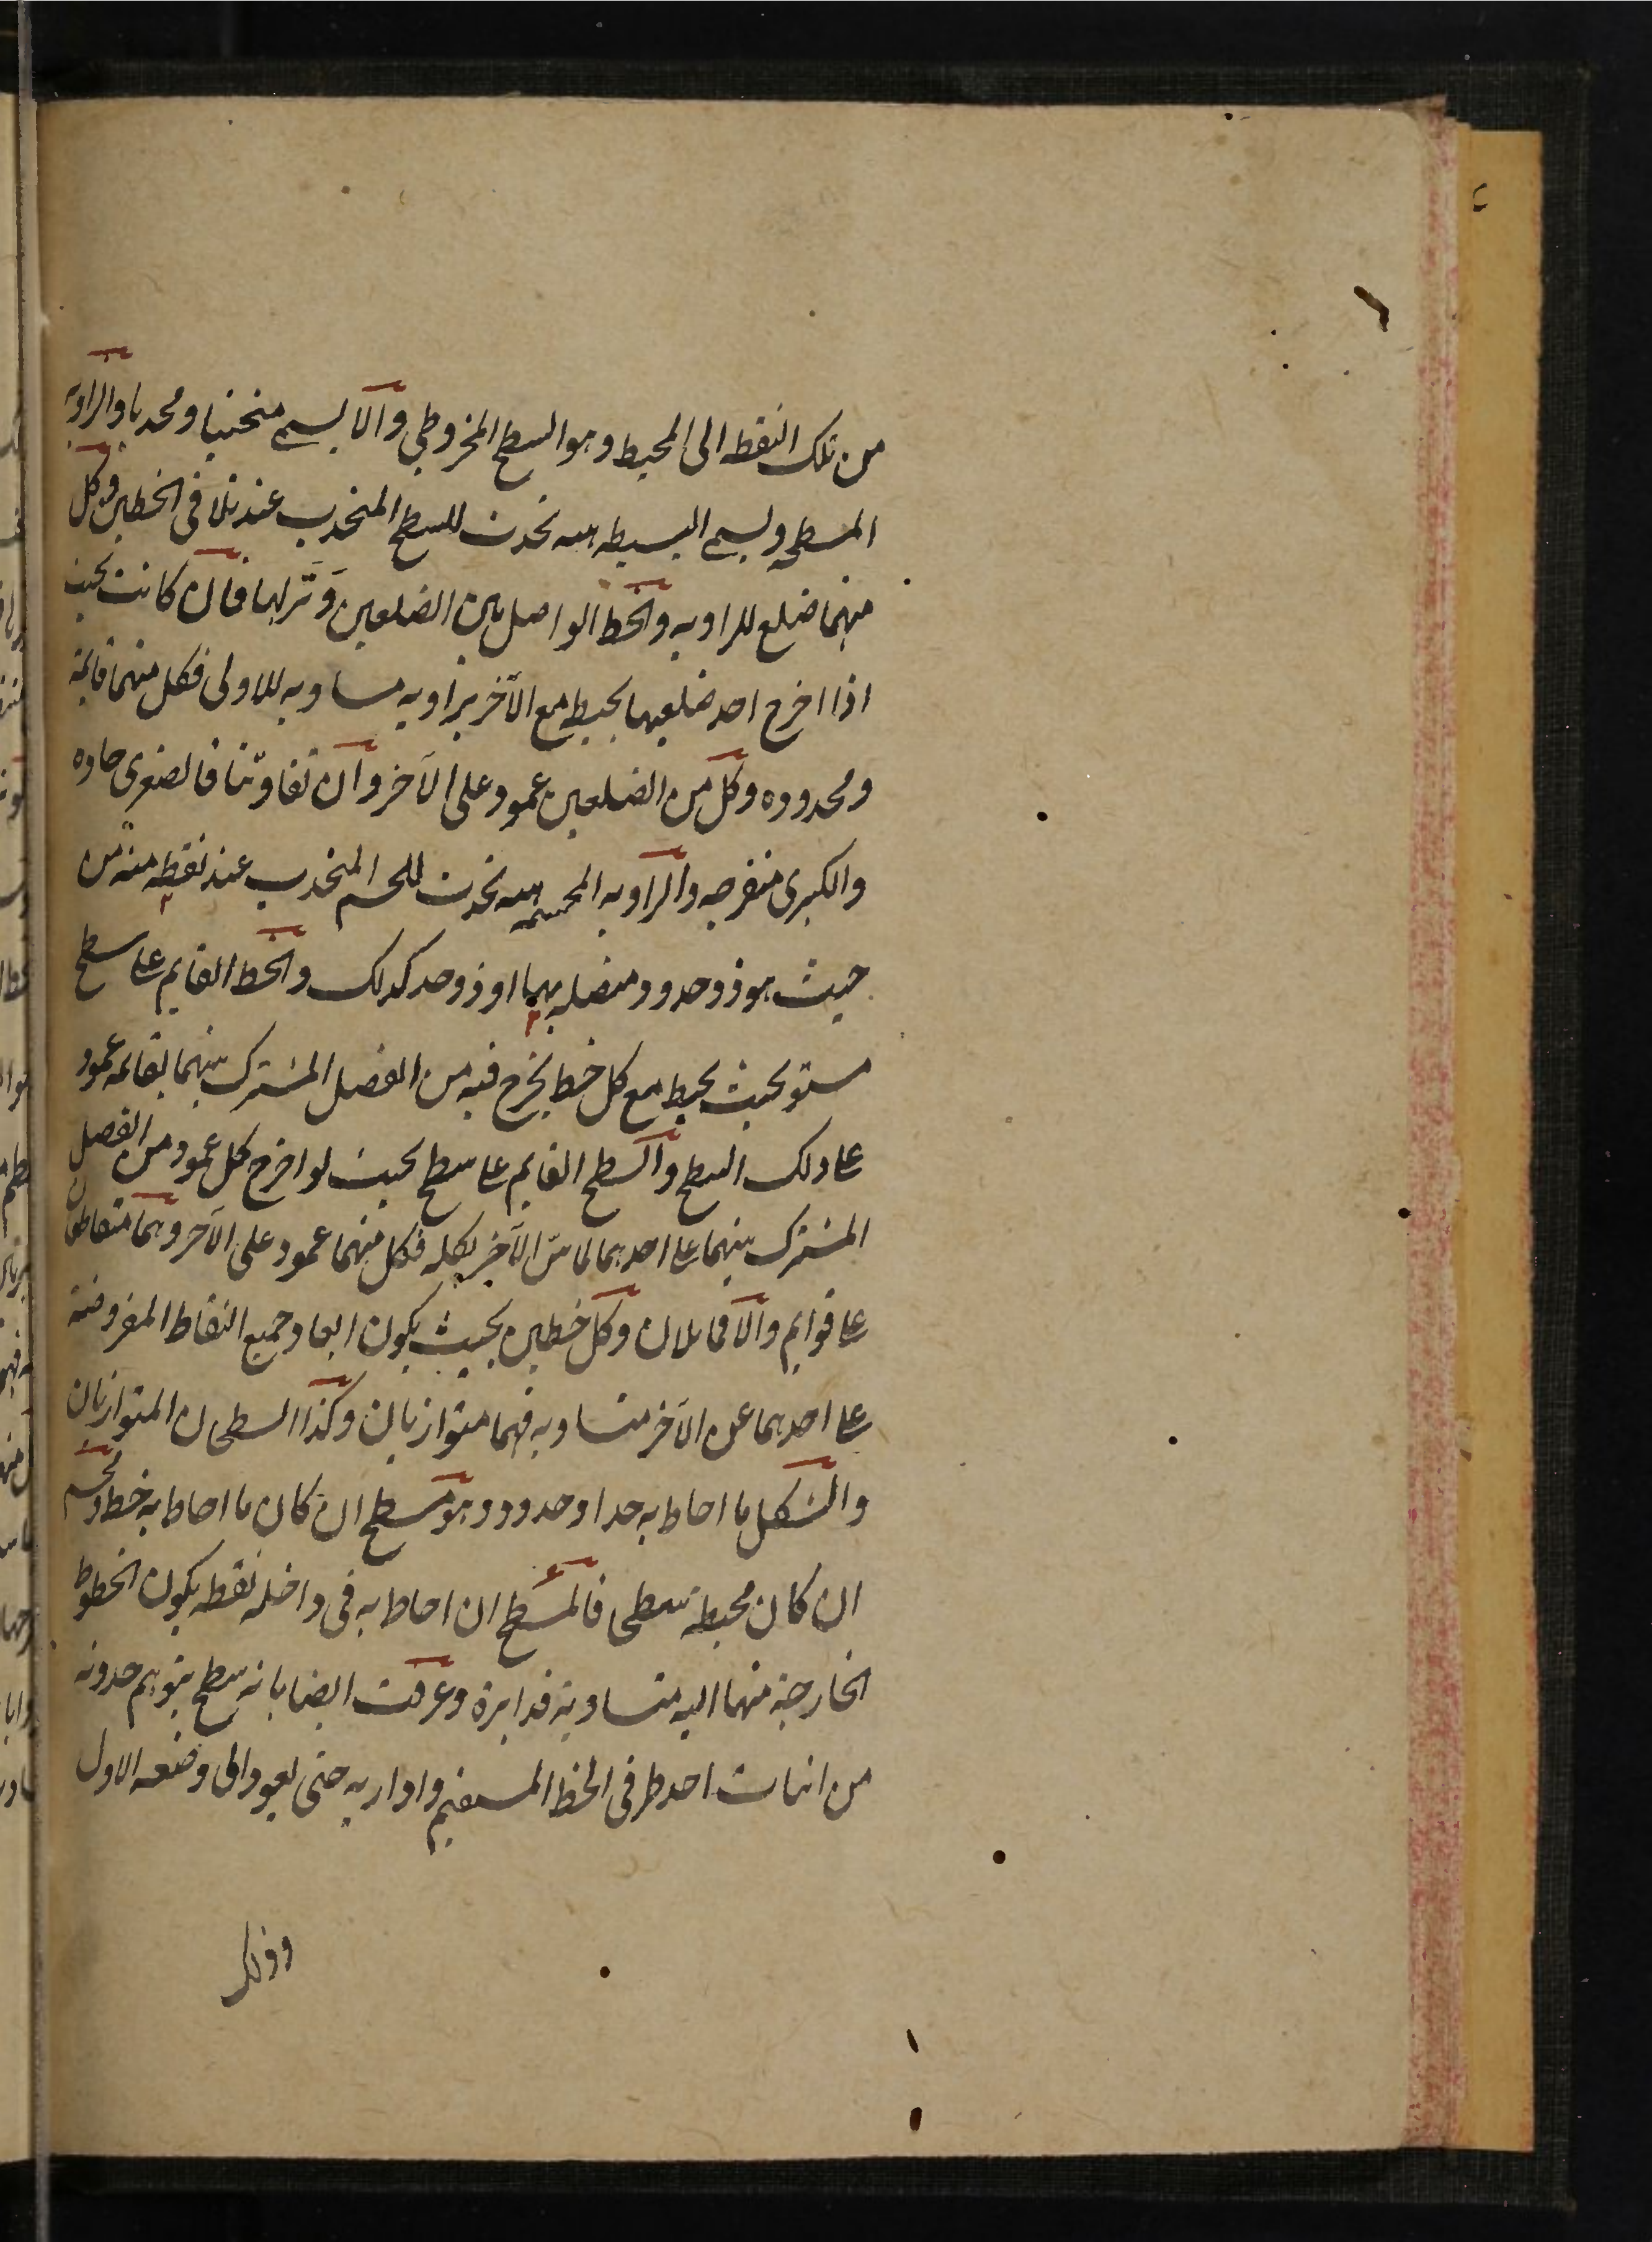 من تلك النقطه الى المحيط وهو السطح المخروطى والا يسمى منحنيا ومحدبا والزاويه
المسطحه ويسمى البسيطه هيئه تحدث للسطح المنحدب عند تلاقى الخطين وكل
منهما ضلع للزاويه والخط الواصل بين الضلعين وَتَر لها فان كانت بحيث
اذا اخرج احد ضلعيها يحيط مع الآخر بزاويه مساويه للاولى فكل منهما قائمة
ومحدوده وكل من الضلعين عمود على الآخر وان تفاوتتا فالصغرى حاده
والكبرى منفرجه والزاويه المجسمه هيئه تحدث للجسم المنحدب عند نقطه منه من
حيث هو ذو حدود متصله بها او ذو حد كذلك والخط القايم على سطح
مستو بحيث يحيط مع كل خط يخرج فيه من الفصل المشترك بينهما بقائمه عمود
على ذلك السطح والسطح القايم على سطح بحيث لو اخرج كل عمود من الفصل
المشترك بينهما على احدهما لماسّ الآخر بكله فكل منهما عمود على الآخر وهما متقاطعان
على قوايم والا فمايلان وكل خطين بحيث يكون ابعاد جميع النقاط المفروضة
على احدهما عن الآخر متساويه فهما متوازيان وكذا السطحان المتوازيان
والشكل ما احاط به حد او حدود وهو مسطح ان كان ما احاط به خط ومجسم
ان كان محيطه سطحى فالمسطح ان احاط به فى داخله نقطه يكون الخطوط
الخارجة منها اليه متساوية فدايرة وعرفت ايضا بانه سطح يتوهم حدوثه
من اثبات احد طرفى الخط المستقيم وادارته حتى يعود الى وضعه الاول
وذلك